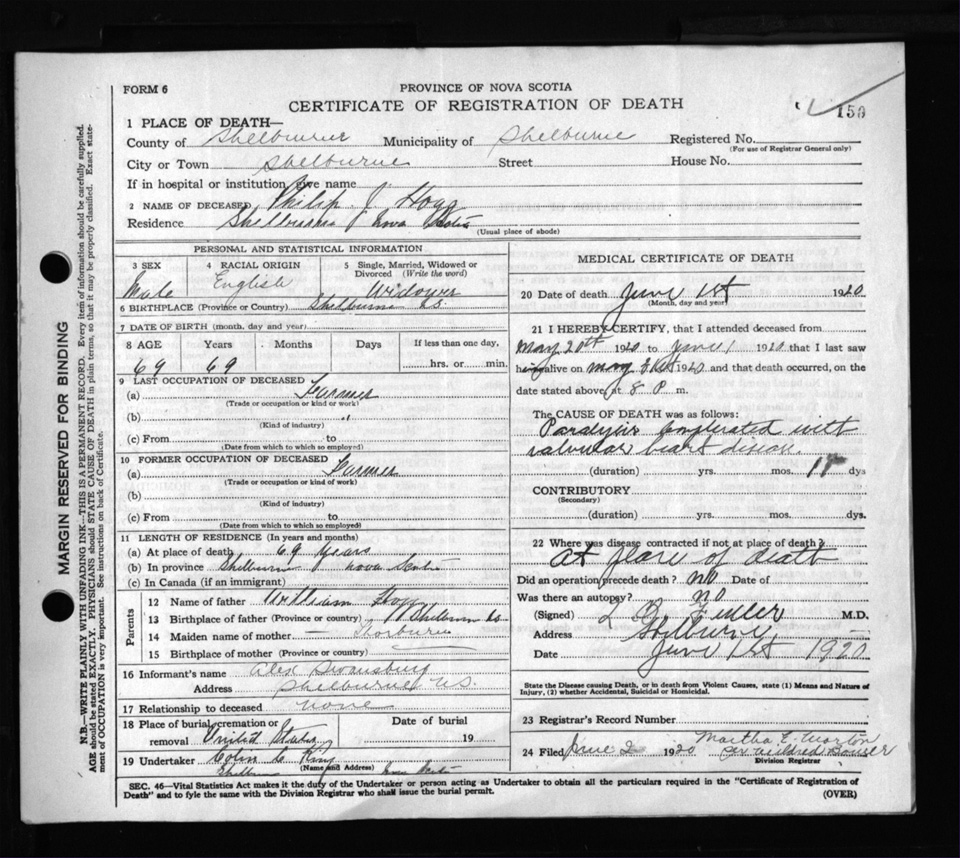 FORM 6
PROVINCE OF NOVA SCOTIA
CERTIFICATE OF REGISTRATION OF DEATH
150
1 PLACE OF DEATH—
County of Shelburne Municipality of Shelburne Registered No.
(For use of Registrar General only)
City or Town Shelburne Street House No.
If in hospital or institution give name
2 NAME OF DECEASED Philip J Hogg
Residence Shelburne Nova Scotia
(Usual place of abode)
PERSONAL AND STATISTICAL INFORMATION
3 SEX 4 RACIAL ORIGIN 5 Single, Married, Widowed or Divorced (Write the word)
Male English Widower
6 BIRTHPLACE (Province or Country) Shelburne
7 DATE OF BIRTH (month, day and year)
8 AGE Years Months Days If less than one day,
69 69 hrs. or min.
9 LAST OCCUPATION OF DECEASED
(a) Farmer
(Trade or occupation or kind of work)
(b) "
(Kind of industry)
(c) From to
(Date from which to which so employed)
10 FORMER OCCUPATION OF DECEASED
(a) Farmer
(Trade or occupation or kind of work)
(b)
(Kind of industry)
(c) From to
(Date from which to which so employed)
11 LENGTH OF RESIDENCE (In years and months)
(a) At place of death 69 years
(b) In province Shelburne Nova Scotia
(c) In Canada (if an immigrant)
Parents
12 Name of father William Hogg
13 Birthplace of father (Province or country) Shelburne Co
14 Maiden name of mother — Thorburn
15 Birthplace of mother (Province or Country)
16 Informant's name Alex Swansburg
Address Shelburne N.S.
17 Relationship to deceased none
18 Place of burial, cremation or removal United States Date of burial 19
19 Undertaker King
(Name and Address)
Shelburne Nova Scotia
MEDICAL CERTIFICATE OF DEATH
20 Date of death June 1st 1920
(Month, day and year)
21 I HEREBY CERTIFY, that I attended deceased from
May 20th 1920 to June 1 1920 that I last saw
him alive on May 1920 and that death occurred, on the
date stated above, at 8 P. m.
The CAUSE OF DEATH was as follows:
Paralysis Complicated with
valvular heart disease.
(duration) yrs. mos. dys
CONTRIBUTORY
(Secondary)
(duration) yrs. mos. dys.
22 Where was disease contracted if not at place of death?
At place of death
Did an operation precede death? no Date of
Was there an autopsy? no
(Signed) L B. Fuller M.D.
Address Shelburne,
Date June 1st 1920
State the Disease causing Death, or in death from Violent Causes, state (1) Means and Nature of
Injury, (2) whether Accidental, Suicidal or Homicidal.
23 Registrar's Record Number
24 Filed June 2 1920 Martha E. Morton
per Mildred Bower
Division Registrar
SEC. 46—Vital Statistics Act makes it the duty of the Undertaker or person acting as Undertaker to obtain all the particulars required in the "Certificate of Registration of
Death" and to fyle the same with the Division Registrar who shall issue the burial permit. (OVER)
MARGIN RESERVED FOR BINDING
N.B.—WRITE PLAINLY WITH UNFADING INK—THIS IS A PERMANENT RECORD. Every item of information should be carefully supplied.
AGE should be stated EXACTLY. PHYSICIANS should STATE CAUSE OF DEATH in plain terms, so that it may be properly classified. Exact state-
ment of OCCUPATION is very important. See instructions on back of Certificate.